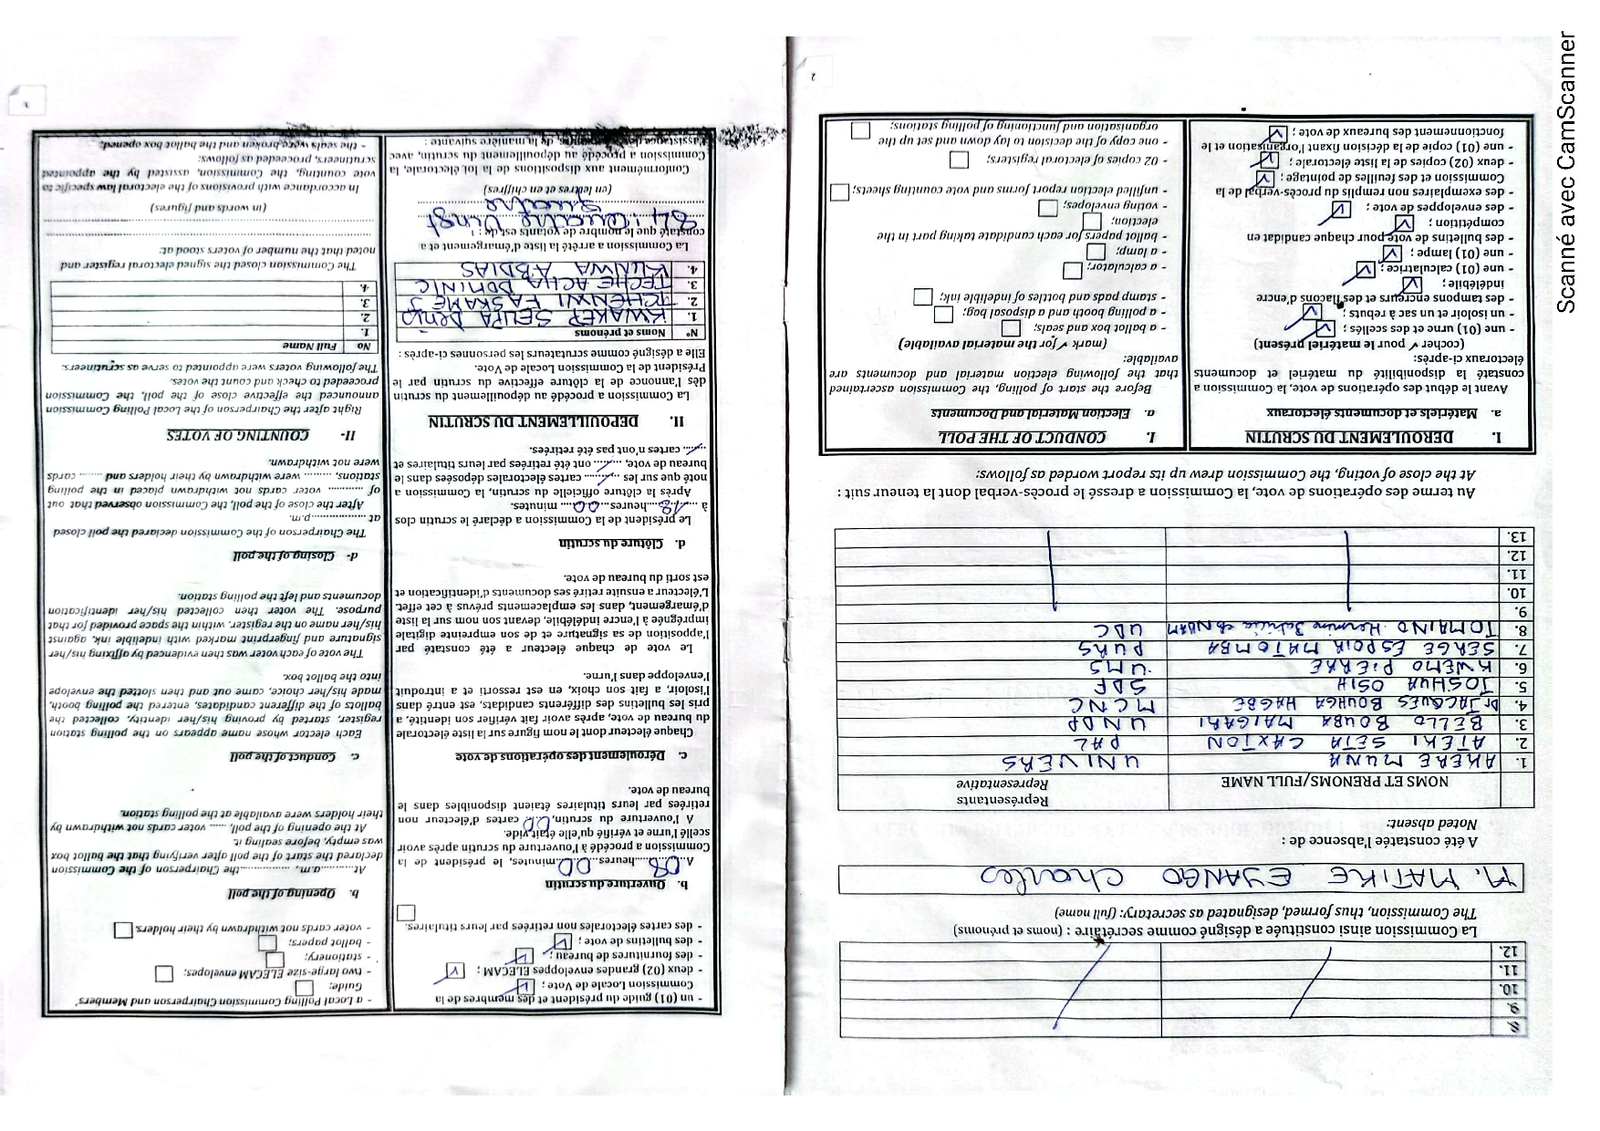 8.
9.
10.
11.
12.
La Commission ainsi constituée a désigné comme secrétaire : (noms et prénoms)
The Commission, thus formed, designated as secretary: (full name)
M. MATIKE EYANGO Charles
A été constatée l'absence de :
Noted absent:
NOMS ET PRENOMS/FULL NAME
Représentants
Representative
1. AKERE MUNA UNIVERS
2. ATEKI SETA CAXTON PAL
3. BELLO BOUBA MAIGARI UNDP
4. Dr JACQUES BOUHGA HAGBE MCNC
5. JOSHUA OSIH SDF
6. KWEMO PIERRE UMS
7. SERGE ESPOIR MATOMBA PURS
8. TOMAINO Hermine Patricia ep NDAM UDC
9.
10.
11.
12.
13.
Au terme des opérations de vote, la Commission a dressé le procès-verbal dont la teneur suit :
At the close of voting, the Commission drew up its report worded as follows:
I. DEROULEMENT DU SCRUTIN
a. Matériels et documents électoraux
Avant le début des opérations de vote, la Commission a
constaté la disponibilité du matériel et documents
électoraux ci-après:
(cocher ✓ pour le matériel présent)
- une (01) urne et des scellés ;
- un isoloir et un sac à rebuts ;
- des tampons encreurs et des flacons d'encre
indélébile ;
- une (01) calculatrice ;
- une (01) lampe ;
- des bulletins de vote pour chaque candidat en
compétition ;
- des enveloppes de vote ;
- des exemplaires non remplis du procès-verbal de la
Commission et des feuilles de pointage ;
- deux (02) copies de la liste électorale ;
- une (01) copie de la décision fixant l'organisation et le
fonctionnement des bureaux de vote ;
I. CONDUCT OF THE POLL
a. Election Material and Documents
Before the start of polling, the Commission ascertained
that the following election material and documents are
available:
(mark ✓ for the material available)
- a ballot box and seals;
- a polling booth and a disposal bag;
- stamp pads and bottles of indelible ink;
- a calculator;
- a lamp;
- ballot papers for each candidate taking part in the
election;
- voting envelopes;
- unfilled election report forms and vote counting sheets;
- 02 copies of electoral registers;
- one copy of the decision to lay down and set up the
organisation and functioning of polling stations;
2
- un (01) guide du président et des membres de la
Commission Locale de Vote ;
- deux (02) grandes enveloppes ELECAM ;
- des fournitures de bureau ;
- des bulletins de vote ;
- des cartes électorales non retirées par leurs titulaires.
b. Ouverture du scrutin
A 08 heures 00 minutes, le président de la
Commission a procédé à l'ouverture du scrutin après avoir
scellé l'urne et vérifié qu'elle était vide.
A l'ouverture du scrutin, 00 cartes d'électeur non
retirées par leurs titulaires étaient disponibles dans le
bureau de vote.
c. Déroulement des opérations de vote
Chaque électeur dont le nom figure sur la liste électorale
du bureau de vote, après avoir fait vérifier son identité, a
pris les bulletins des différents candidats, est entré dans
l'isoloir, a fait son choix, en est ressorti et a introduit
l'enveloppe dans l'urne.
Le vote de chaque électeur a été constaté par
l'apposition de sa signature et de son empreinte digitale
imprégnée à l'encre indélébile, devant son nom sur la liste
d'émargement, dans les emplacements prévus à cet effet.
L'électeur a ensuite retiré ses documents d'identification et
est sorti du bureau de vote.
d. Clôture du scrutin
Le président de la Commission a déclaré le scrutin clos
à 18 heures 00 minutes.
Après la clôture officielle du scrutin, la Commission a
noté que sur les / cartes électorales déposées dans le
bureau de vote, / ont été retirées par leurs titulaires et
/ cartes n'ont pas été retirées.
II. DEPOUILLEMENT DU SCRUTIN
La Commission a procédé au dépouillement du scrutin
dès l'annonce de la clôture effective du scrutin par le
Président de la Commission Locale de Vote.
Elle a désigné comme scrutateurs les personnes ci-après :
N° Noms et prénoms
1. KWAKEP SEUPA Denis
2. TCHENWI FASKAME J
3. TECHE ACHA DOMINIC
4. KUNWA ABDIAS
La Commission a arrêté la liste d'émargement et a
constaté que le nombre de votants est de :
84 ; Quatre Vingt
Quatre
(en lettres et en chiffres)
Conformément aux dispositions de la loi électorale, la
Commission a procédé au dépouillement du scrutin, avec
l'assistance des scrutateurs, de la manière suivante :
- a Local Polling Commission Chairperson and Members'
Guide;
- two large-size ELECAM envelopes;
- stationery;
- ballot papers;
- voter cards not withdrawn by their holders.
b. Opening of the poll
At..........a.m, ..................the Chairperson of the Commission
declared the start of the poll after verifying that the ballot box
was empty, before sealing it.
At the opening of the poll, ...... voter cards not withdrawn by
their holders were available at the polling station.
c. Conduct of the poll
Each elector whose name appears on the polling station
register, started by proving his/her identity, collected the
ballots of the different candidates, entered the polling booth,
made his/her choice, came out and then slotted the envelope
into the ballot box.
The vote of each voter was then evidenced by affixing his/her
signature and fingerprint marked with indelible ink, against
his/her name on the register, within the space provided for that
purpose. The voter then collected his/her identification
documents and left the polling station.
d- Closing of the poll
The Chairperson of the Commission declared the poll closed
at ..................p.m.
After the close of the poll, the Commission observed that out
of ........... voter cards not withdrawn placed in the polling
stations, ......... were withdrawn by their holders and ....... cards
were not withdrawn.
II- COUNTING OF VOTES
Right after the Chairperson of the Local Polling Commission
announced the effective close of the poll, the Commission
proceeded to check and count the votes.
The following voters were appointed to serve as scrutineers:
No Full Name
1.
2.
3.
4.
The Commission closed the signed electoral register and
noted that the number of voters stood at:
(in words and figures)
In accordance with provisions of the electoral law specific to
vote counting, the Commission, assisted by the appointed
scrutineers, proceeded as follows:
- the seals were broken and the ballot box opened;
Scanné avec CamScanner